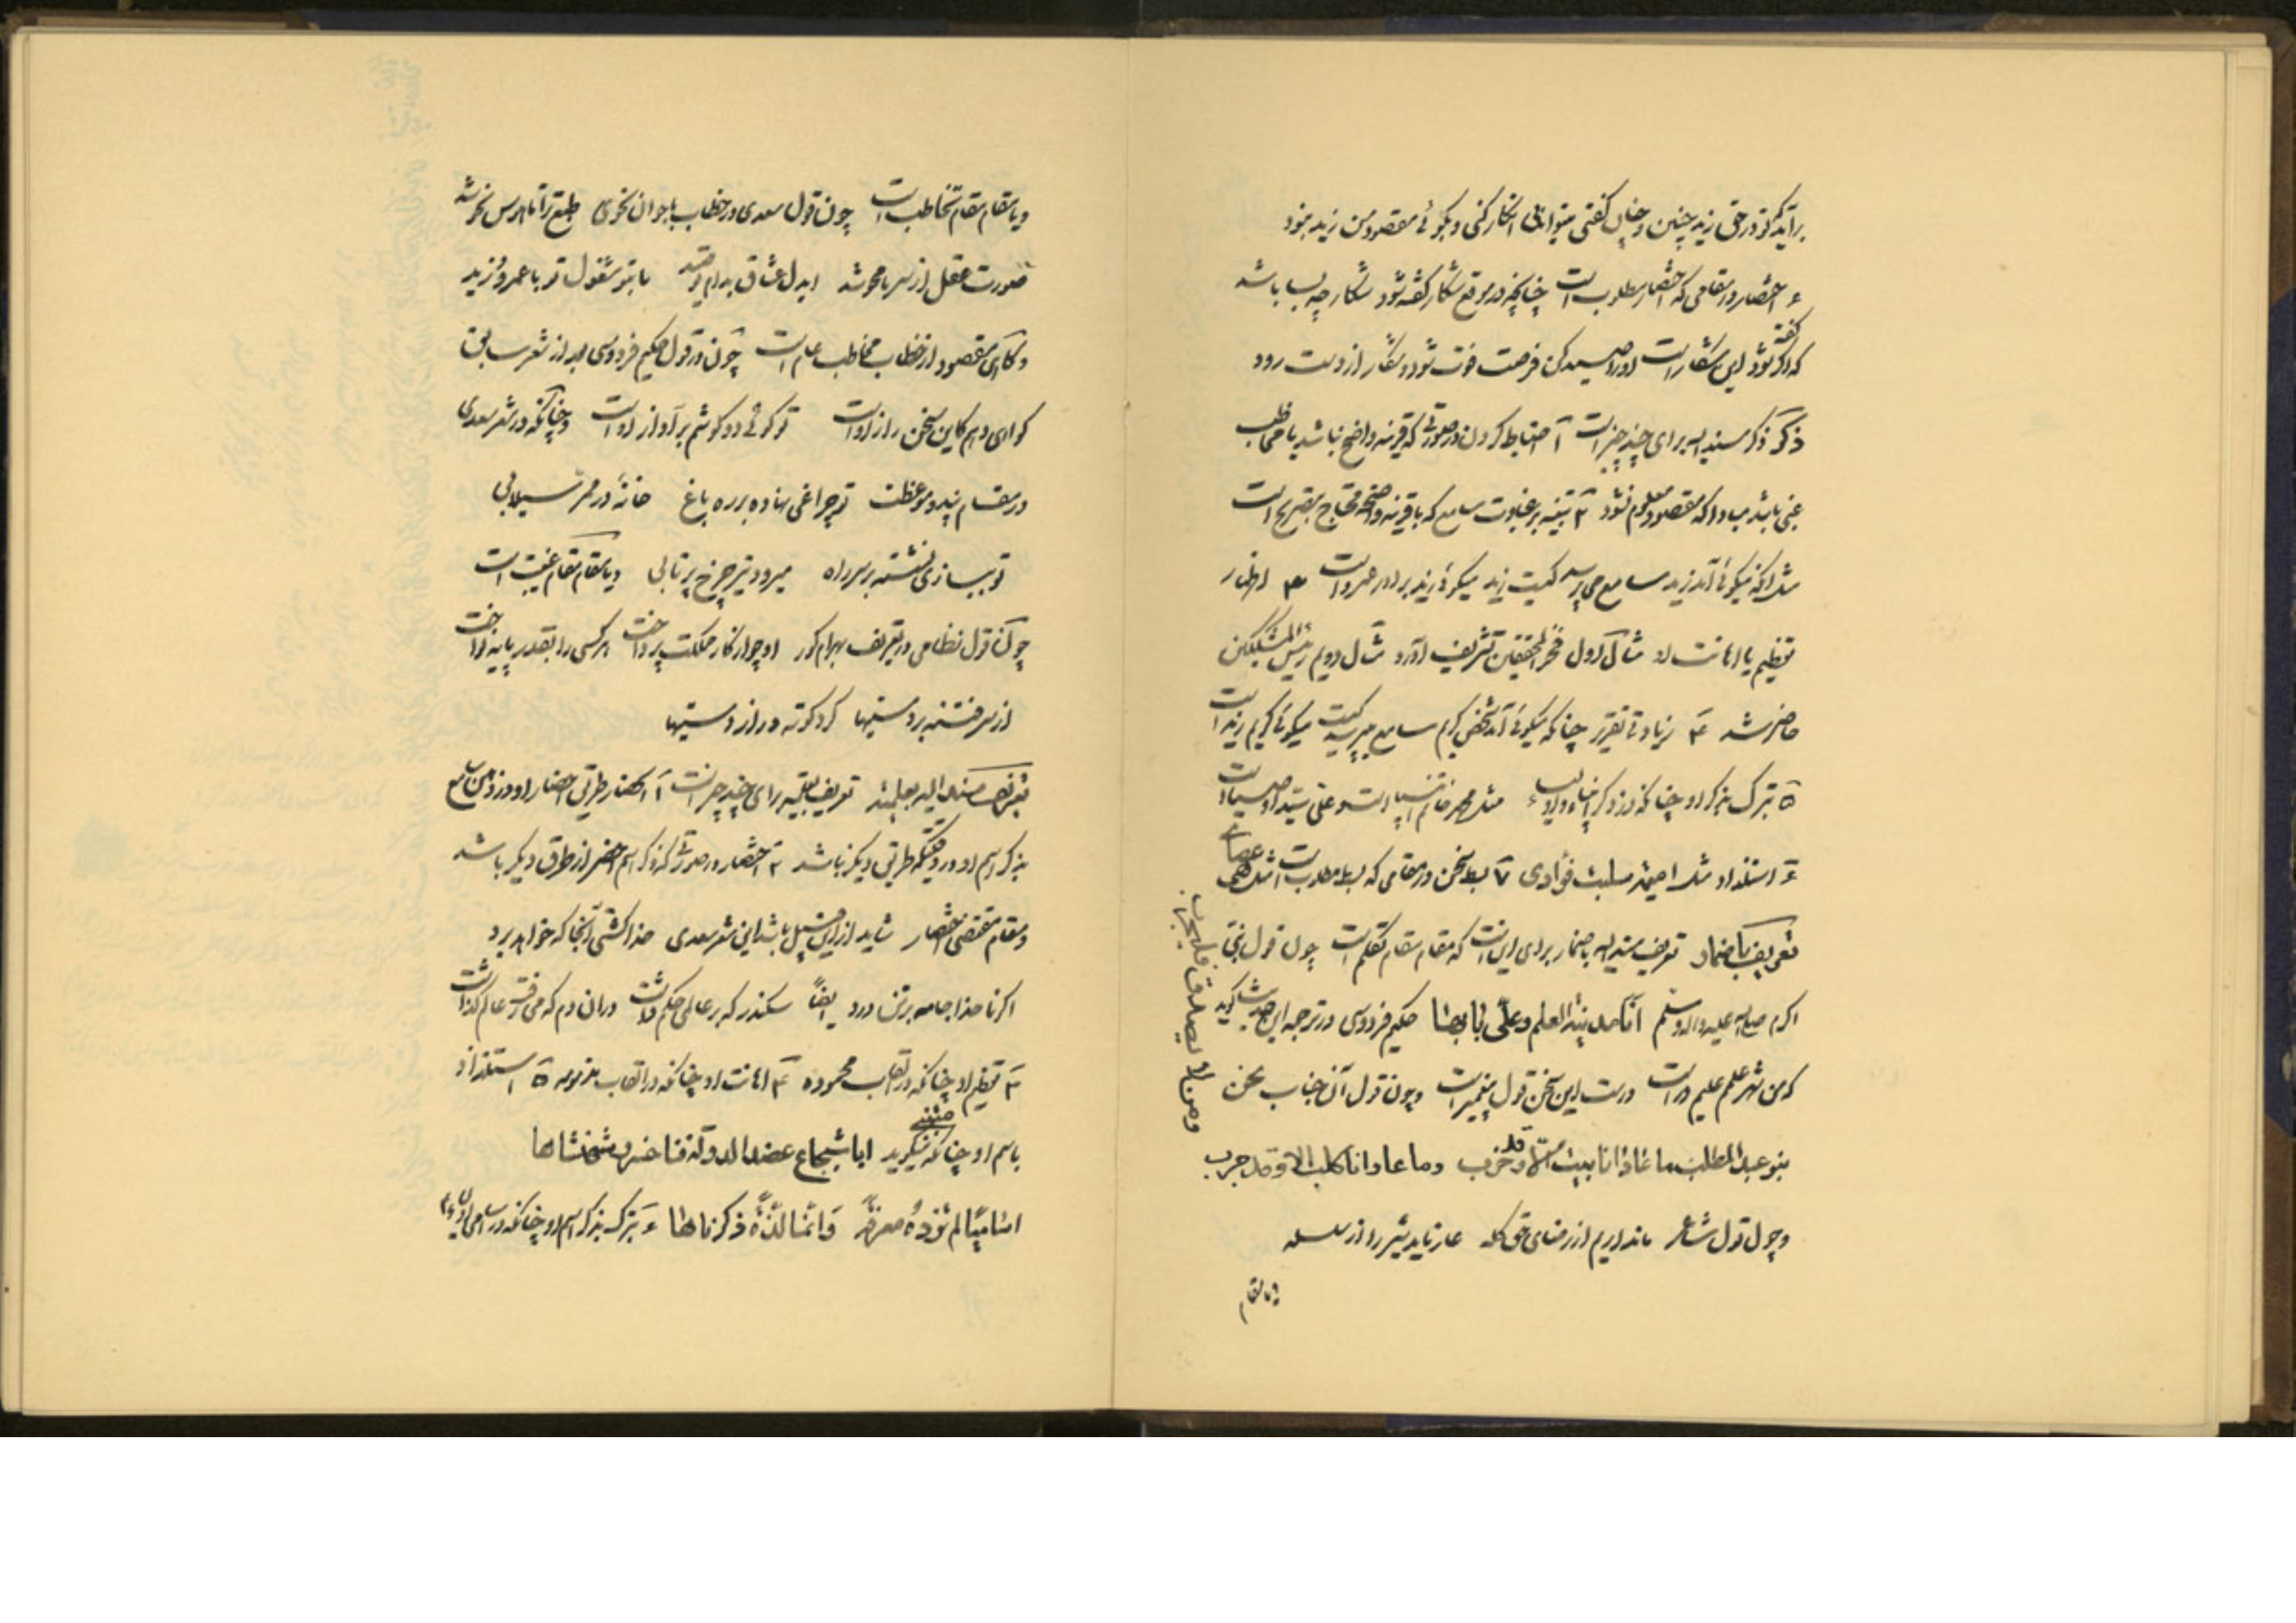 برآید که تو در حق زید چنین و چنان گفتی میتوانی انکار کنی و بگوئی مقصود من زید نبود
۶ اختصار در مقامی که اختصار مطلوب است چنانچه در موقع شکار گفته شود شکار چه بسا باشد
که اگر گفته شود این شکار است او را صید کن فرصت فوت شود و شکار از دست رود
ذکر ذکر مسند الیه برای چند چیز است ۱ احتیاط کردن در صورتی که قرینه واضح نباشد یا مخاطب
غبی باشد مبادا که مقصود معلوم نشود ۲ تنبیه بر غباوت سامع که با قرینه واضحه محتاج بتصریح است
مثل آنکه میگوئی آمد زید سامع می پرسد کیست زید میگوئی زید برادر عمرو است ۳ اظهار
تعظیم یا اهانت او مثال اول فخر المحققین تشریف آورد مثال دویم رئیس المشککین
حاضر شد ۴ زیادتی تقریر چنانکه میگوئی آمد شخص کریم سامع میپرسد کیست میگوئی کریم زید است
۵ تبرک بذکر او چنانکه در ذکر انبیاء و اولیاء مثل محمد خاتم انبیاء است و علی سید اوصیاء است
۶ استلذاذ مثل امیمة سلبت فؤادی ۷ بسط سخن در مقامی که بسط مطلوب است مثل هی عصای
تعریف باضمار تعریف مسند الیه باضمار برای این است که مقام مقام تکلم است چون قول نبی
اکرم صلی الله علیه و اله و سلم انا مدینة العلم و علی بابها حکیم فردوسی در ترجمه این حدیث گوید
که من شهر علمم علیم در است درست این سخن قول پیغمبر است و چون قول آن جناب نحن
بنو عبد المطلب ما عاد انا بیت الا و قد خرب و ما عاوانا کلب الا و قد جرب
و من لا یصدق فلیجرب
و چون قول شاعر ما نداریم از رضای حق گله عار ناید شیر را از سلسله
و یا مقام
و یا مقام مقام تخاطب است چون قول سعدی در خطاب با جوان نحوی طبع ترا تا هوس نحو شد
صورت عقل از سر ما محو شد ای دل عشاق بدام تو صید ما بتو مشغول تو با عمرو و زید
و گاهی مقصود از خطاب مخاطب عام است چون در قول حکیم فردوسی بعد از شعر سابق
گواهی دهم کاین سخن راز اوست تو گوئی دو گوشم بر آواز اوست و چنانکه در شعر سعدی
در مقام پند و موعظت تو چراغی نهاده بر ره باغ خانهٔ در ممر سیلابی
تو ببازی نشسته بر سر راه میرود تیر چرخ پرتابی و یا مقام مقام غیبت است
چون قول نظامی در تعریف بهرام گور او چو از کار مملکت پرداخت هر کسی را بقدر پایه نواخت
از سر فتنه برد مستیها کرد کوته دراز دستیها
تعریف مسند الیه بعلمیة تعریف بعلمیة برای چند چیز است ۱ انحصار طریق احضار او در ذهن سامع
بذکر اسم او در وقتیکه طریق دیگر نباشد ۲ اختصار در صورتی که ذکر اسم اخصر از طرق دیگر باشد
و مقام مقتضی اختصار شاید از این قبیل باشد این شعر سعدی خدا کشتی آنجا که خواهد برد
اگر ناخدا جامه بر تن درد ایضاً سکندر که بر عالمی حکم داشت در آن دم که می رفت عالم گذاشت
۳ تعظیم او چنانکه در القاب محموده ۴ اهانت او چنانکه در القاب مذمومه ۵ استلذاذ
باسم او چنانکه متنبی میگوید ابا شجاع عضد الدولة فنا خسرو شهنشاها
اسامیاً لم تزده معرفة و انما لذة ذکرناها ۶ تبرک بذکر اسم او چنانکه در اسامی انبیاء